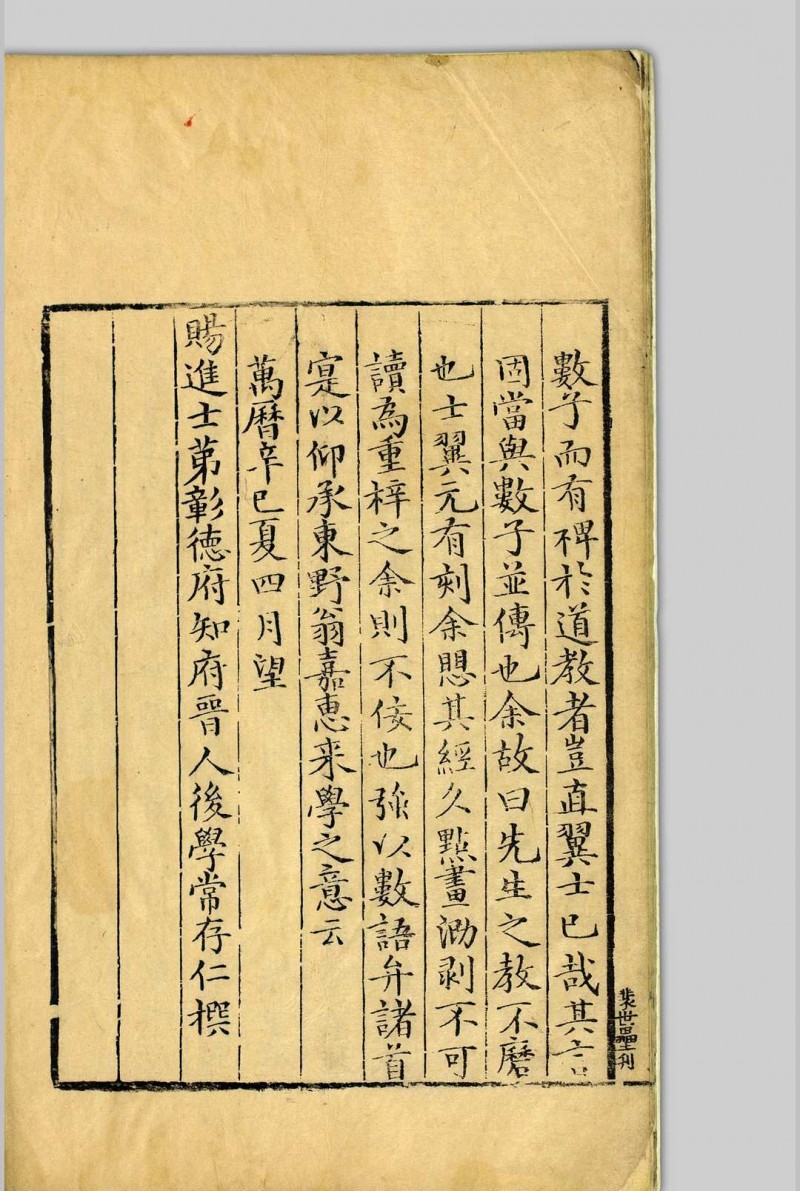 數子而有裨於道教者豈直翼士已哉其言
固當與數子並傳也余故曰先生之教不磨
也士翼元有刻余愳其經久點畫泐剥不可
讀為重梓之余則不佞也強以數語弁諸首
寔以仰承東野翁嘉惠来學之意云
萬曆辛巳夏四月望
賜進士第彰德府知府晉人後學常存仁撰
世 刊